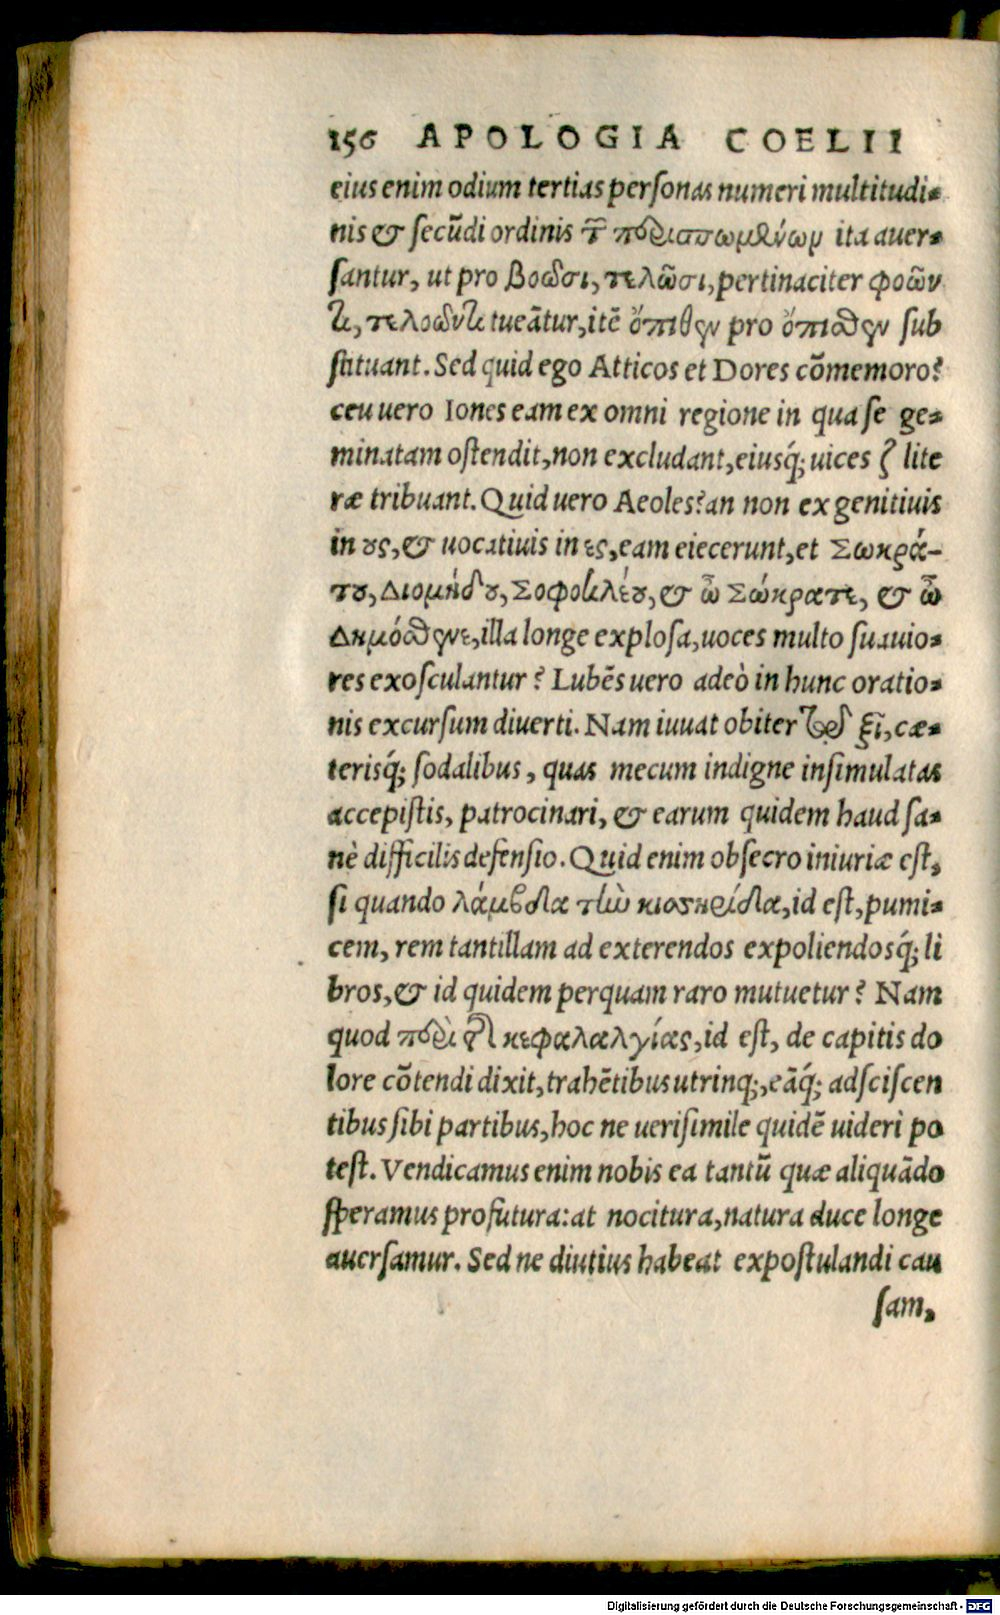 156 APOLOGIA COELII
eius enim odium tertias personas numeri multitudi-
nis & secūdi ordinis τ͂ περισπωμένωμ ita auer-
santur, ut pro βοῶσι, τελῶσι, pertinaciter φοῶν
τι, τελοῶντι tueātur, itē ὄπιθεν pro ὄπισθεν sub
stituant. Sed quid ego Atticos et Dores cōmemoro?
ceu uero Iones eam ex omni regione in qua se ge-
minatam ostendit, non excludant, eiusq́; uices ζ lite
ræ tribuant. Quid uero Aeoles? an non ex genitiuis
in ους, & uocatiuis in ες, eam eiecerunt, et Σωκρά-
του, Διομήδου, Σοφοκλέου, & ὦ Σώκρατε, & ὦ
Δημόσθενε, illa longe explosa, uoces multo suauio-
res exosculantur? Lubēs uero adeò in hunc oratio-
nis excursum diuerti. Nam iuuat obiter ξῖ, cæ-
terisq́; sodalibus, quas mecum indigne insimulatas
accepistis, patrocinari, & earum quidem haud sa-
nè difficilis defensio. Quid enim obsecro iniuriæ est,
si quando λάμβδα τὼ κισσηρίδα, id est, pumi-
cem, rem tantillam ad exterendos expoliendosq́; li
bros, & id quidem perquam raro mutuetur? Nam
quod περὶ κεφαλαλγίας, id est, de capitis do
lore cōtendi dixit, trahētibus utrinq;, eāq́; adsciscen
tibus sibi partibus, hoc ne uerisimile quidē uideri po
test. Vendicamus enim nobis ea tantū quæ aliquādo
speramus profutura: at nocitura, natura duce longe
auersamur. Sed ne diutius habeat expostulandi cau
sam,
Digitalisierung gefördert durch die Deutsche Forschungsgemeinschaft - DFG